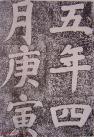 五年四
月庚寅